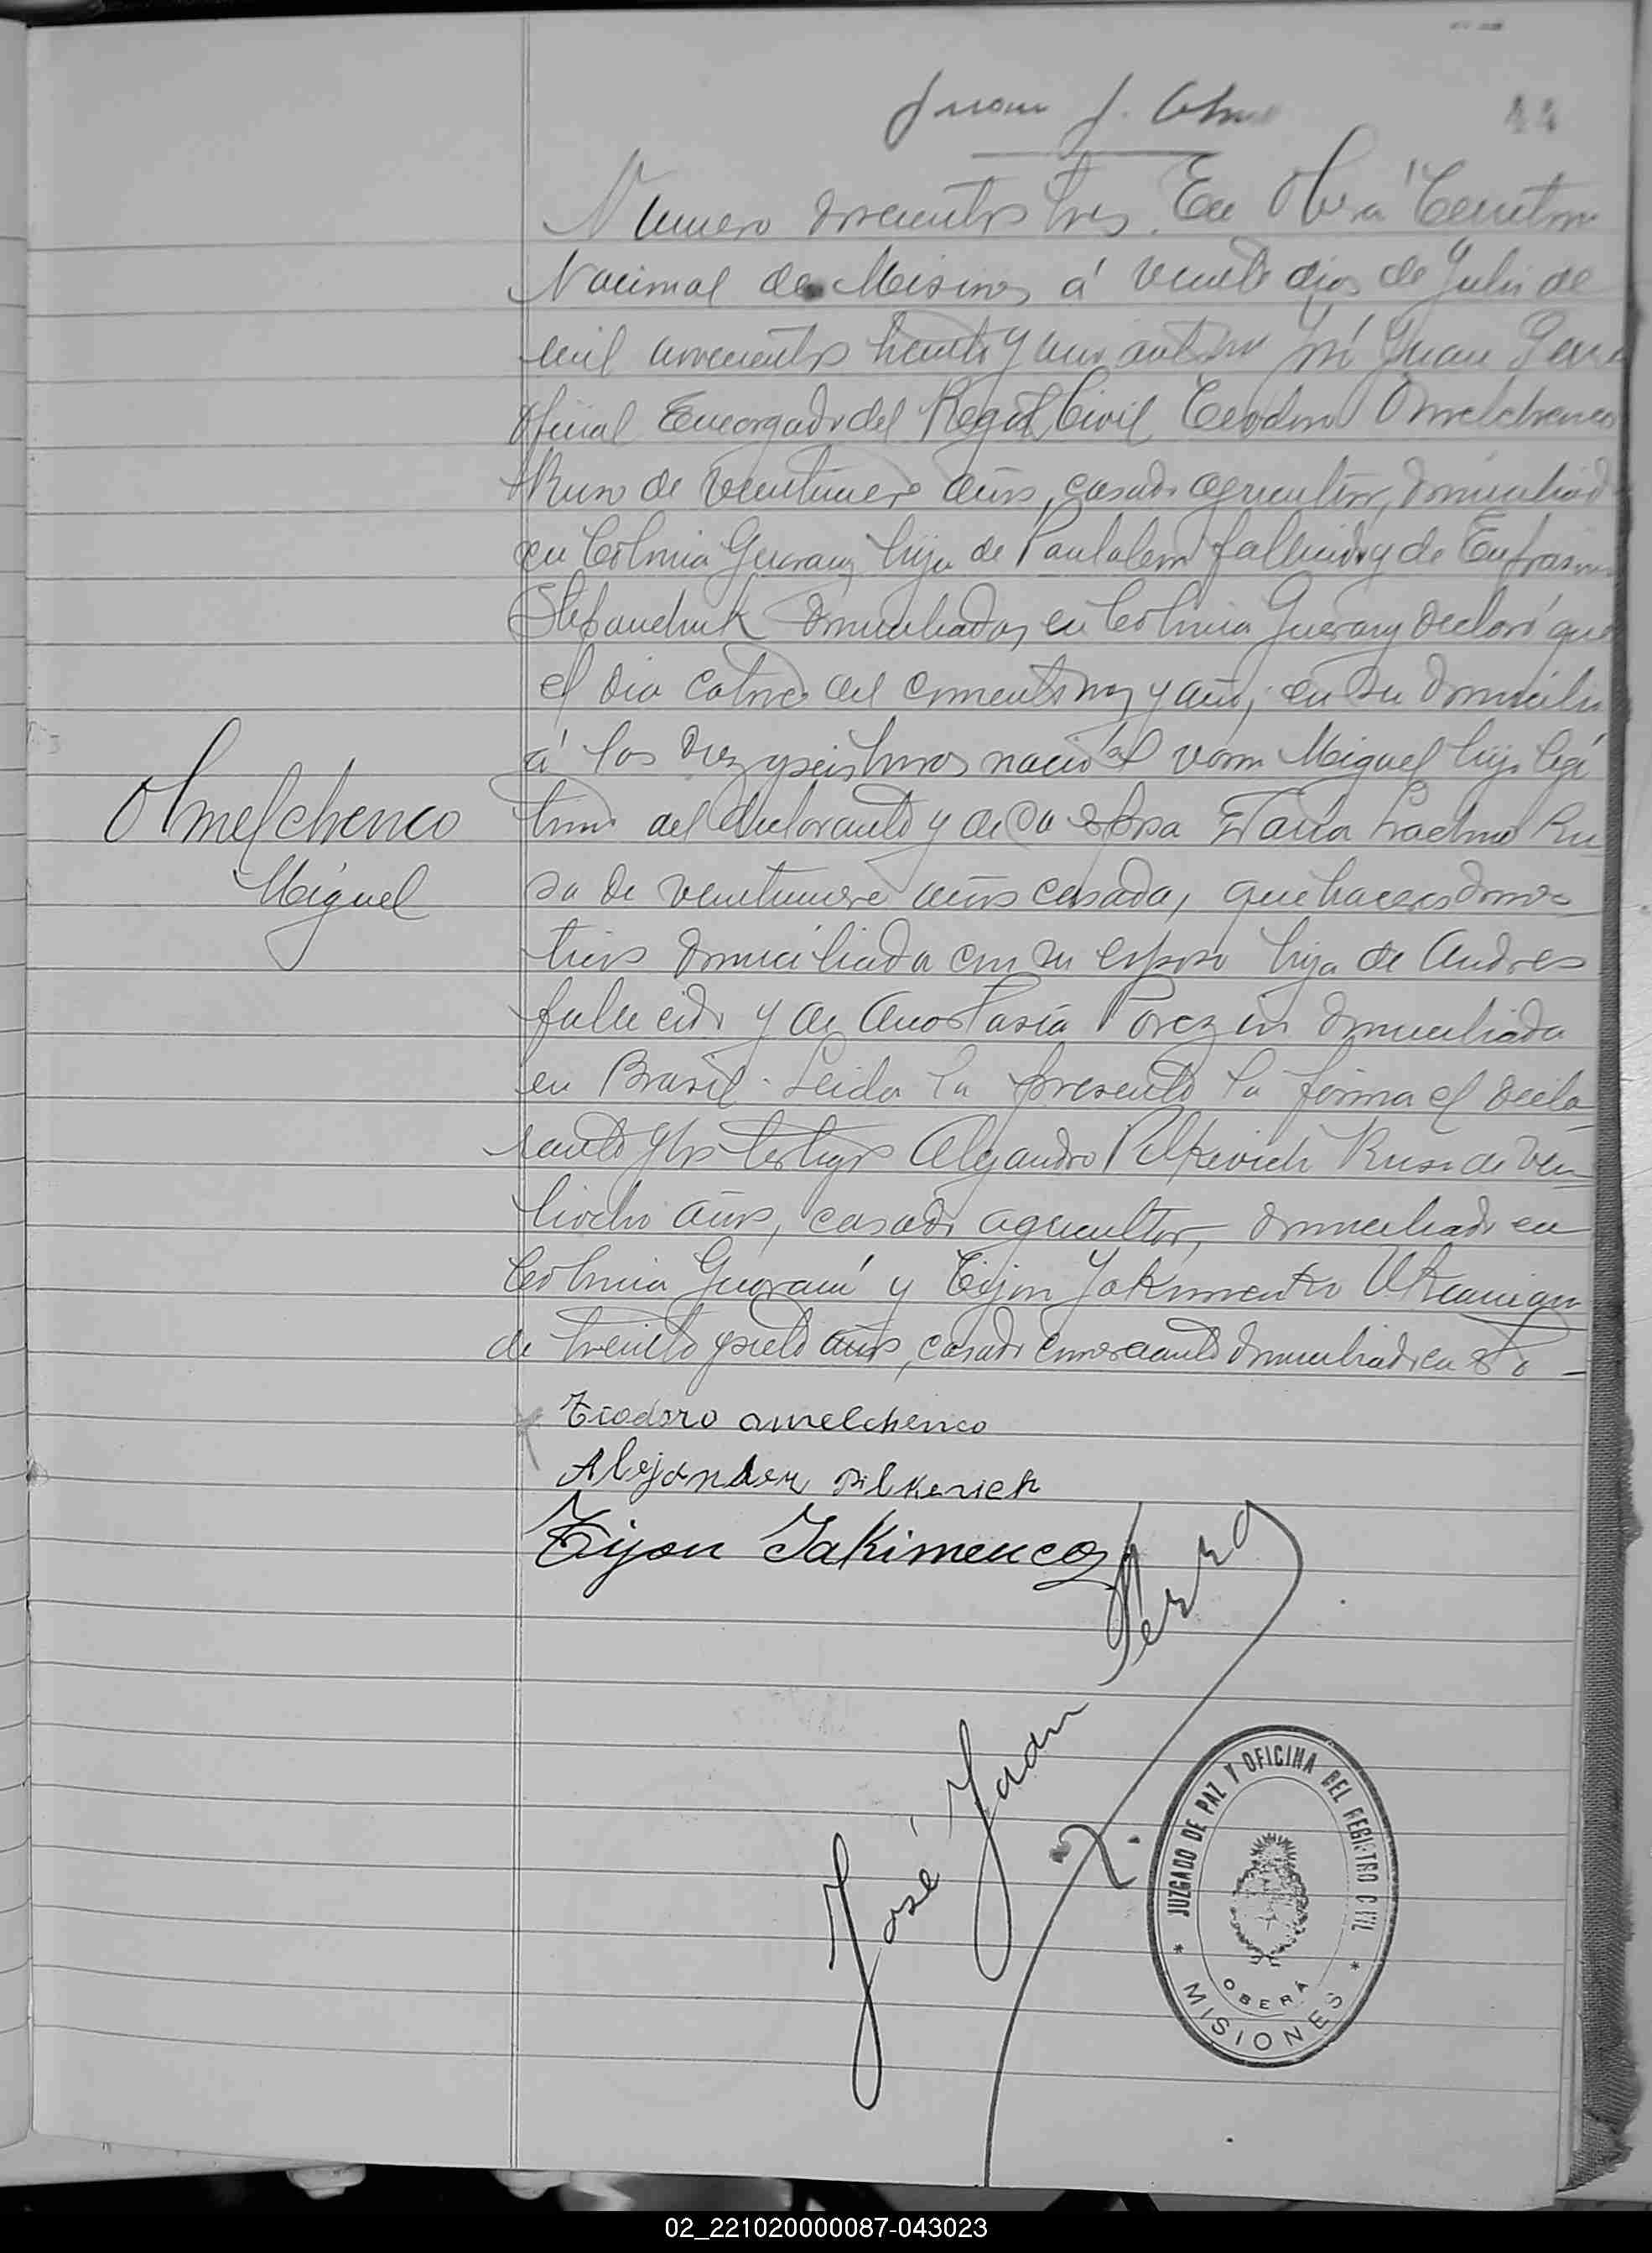 Juan J.
Numero doscientos tres. En Oberá Territorio
Nacional de Misiones á veinte dias de Julio de
mil novecientos treinta y uno ante mi Juan Perro
Oficial Encargado del Regist Civil Teodoro Omelchenco
Ruso de veintinueve años, casado agricultor, domiciliado
en Colonia Guarany hijo de Pantaleon fallecido y de Eufrasina
Stepanchuk domiciliados en Colonia Guarany declaró que
el dia catorce del corriente mes y año, en su domicilio
á las diez y seis horas nació el varon Miguel hijo legi
Omelchenco
Miguel
timo del declarante y de su esposa Ru
sa de veintinueve años casada, quehaceres domes
ticos domiciliada con su esposo hija de Andres
fallecido y de Anastasia domiciliada
en Brasil. Leida la presente la firma el decla
rante y los testigos Alejandro Pilkevich Ruso de vein
tiocho años, casado agricultor, domiciliado en
Colonia Guaraní y Tijon Jakimenko Ukraniano
de treinta y siete años, casado comerciante domiciliado en esta
Teodoro omelchenco
Alejander Pilkevich
Tijon Jakimenco
José Juan Perro
JUZGADO DE PAZ Y OFICINA DEL REGISTRO CIVIL
OBERÁ
* MISIONES *
02_221020000087-043023